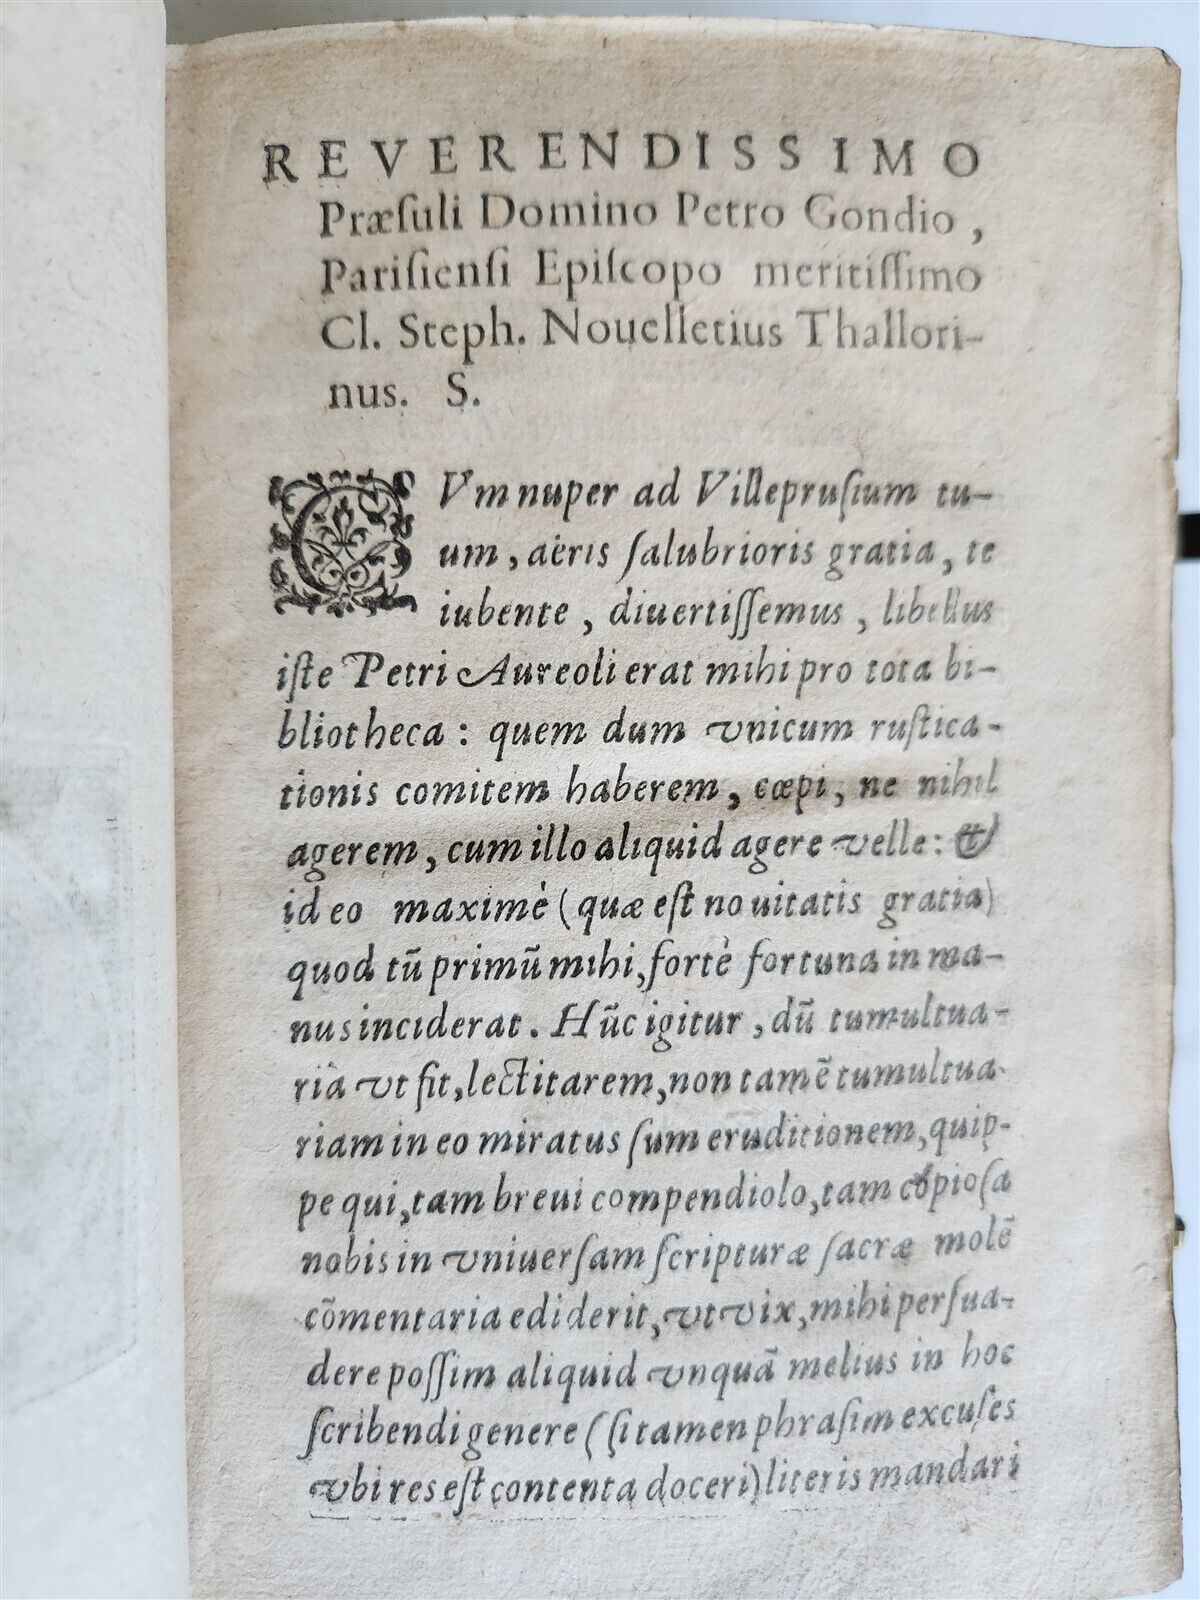 REVERENDISSIMO
Præſuli Domino Petro Gondio,
Pariſienſi Epiſcopo meritiſſimo
Cl. Steph. Nouelletius Thallori-
nus. S.
CVm nuper ad Villepruſium tu-
um, aëris ſalubrioris gratia, te
iubente, diuertiſſemus, libellus
iſte Petri Aureoli erat mihi pro tota bi-
bliotheca: quem dum vnicum ruſtica-
tionis comitem haberem, cœpi, ne nihil
agerem, cum illo aliquid agere velle: &
id eo maximè (quæ eſt nouitatis gratia)
quod tū primū mihi, fortè fortuna in ma-
nus inciderat. Hūc igitur, dū tumultua-
riâ vt fit, lectitarem, non tamē tumultua-
riam in eo miratus ſum eruditionem, quip-
pe qui, tam breui compendiolo, tam copioſa
nobis in vniuerſam ſcripturæ ſacræ molē
cōmentaria ediderit, vt vix, mihi perſua-
dere poſſim aliquid vnquā melius in hoc
ſcribendi genere (ſi tamen phraſim excuſes
vbi res eſt contenta doceri) literis mandari